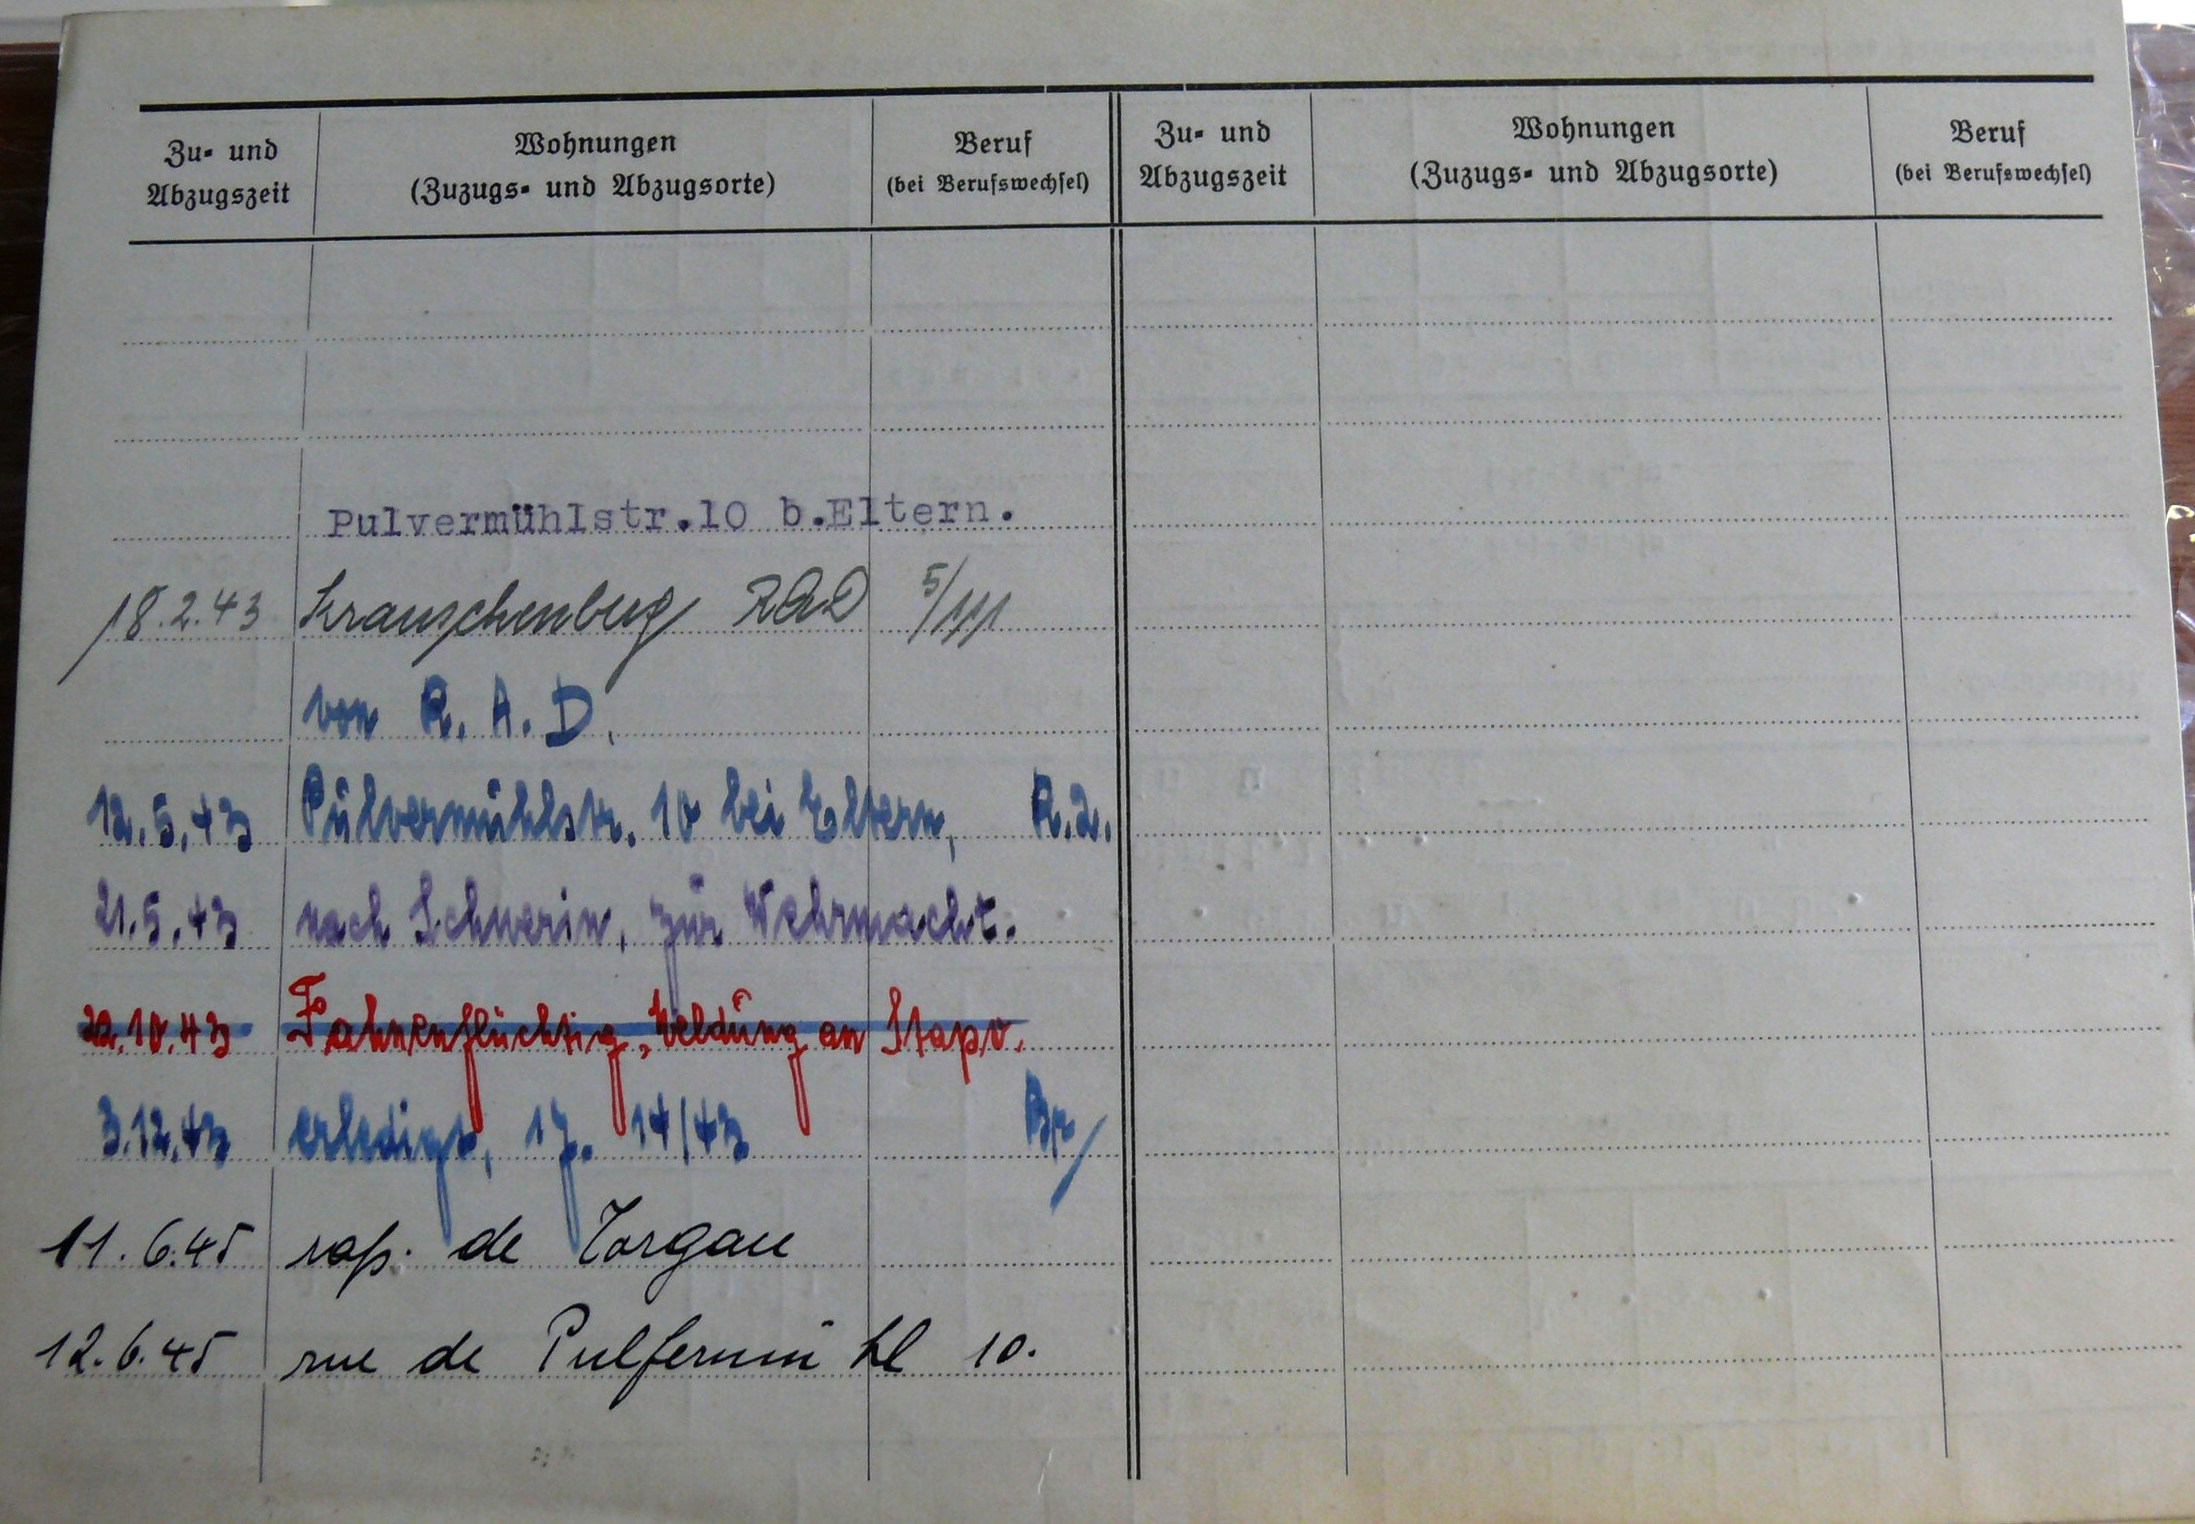 Zu- und Abzugszeit
Wohnungen (Zuzugs- und Abzugsorte)
Beruf (bei Berufswechsel)
Zu- und Abzugszeit
Wohnungen (Zuzugs- und Abzugsorte)
Beruf (bei Berufswechsel)
Pulvermühlstr.10 b.Eltern.
18.2.43 Krauschenberg RAD 5/
von R. A. D.
12.5.43 Pulvermühlstr. 10 bei Eltern,
21.5.43 nach Schwerin, zur Wehrmacht.
22.10.43 Fahnenflüchtig, Meldung an Stapo.
3.12.43 erledigt, 14/43
11.6.45 rap. de Torgau
12.6.45 rue de Pulfermühl 10.